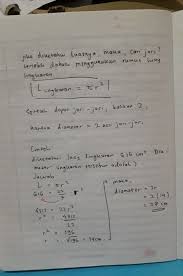 jika diketahui luasnya maka, cari jari²
terlebih dahulu menggunakan rumus luas
lingkaran
L lingkaran = πr²
Setelah dapat jari-jari, kalikan 2.
karena diameter = 2 kali jari-jari.
Contoh
diketahui luas lingkaran 616 cm².
meter lingkaran tersebut adalah?
Jawab
L = πr²
616 = 22/7 r²
4312 = 22r²
r² = 4312/22
r² = 196
r = √196 = 14cm
maka,
diameter = 2r
= 2(14)
= 28 cm